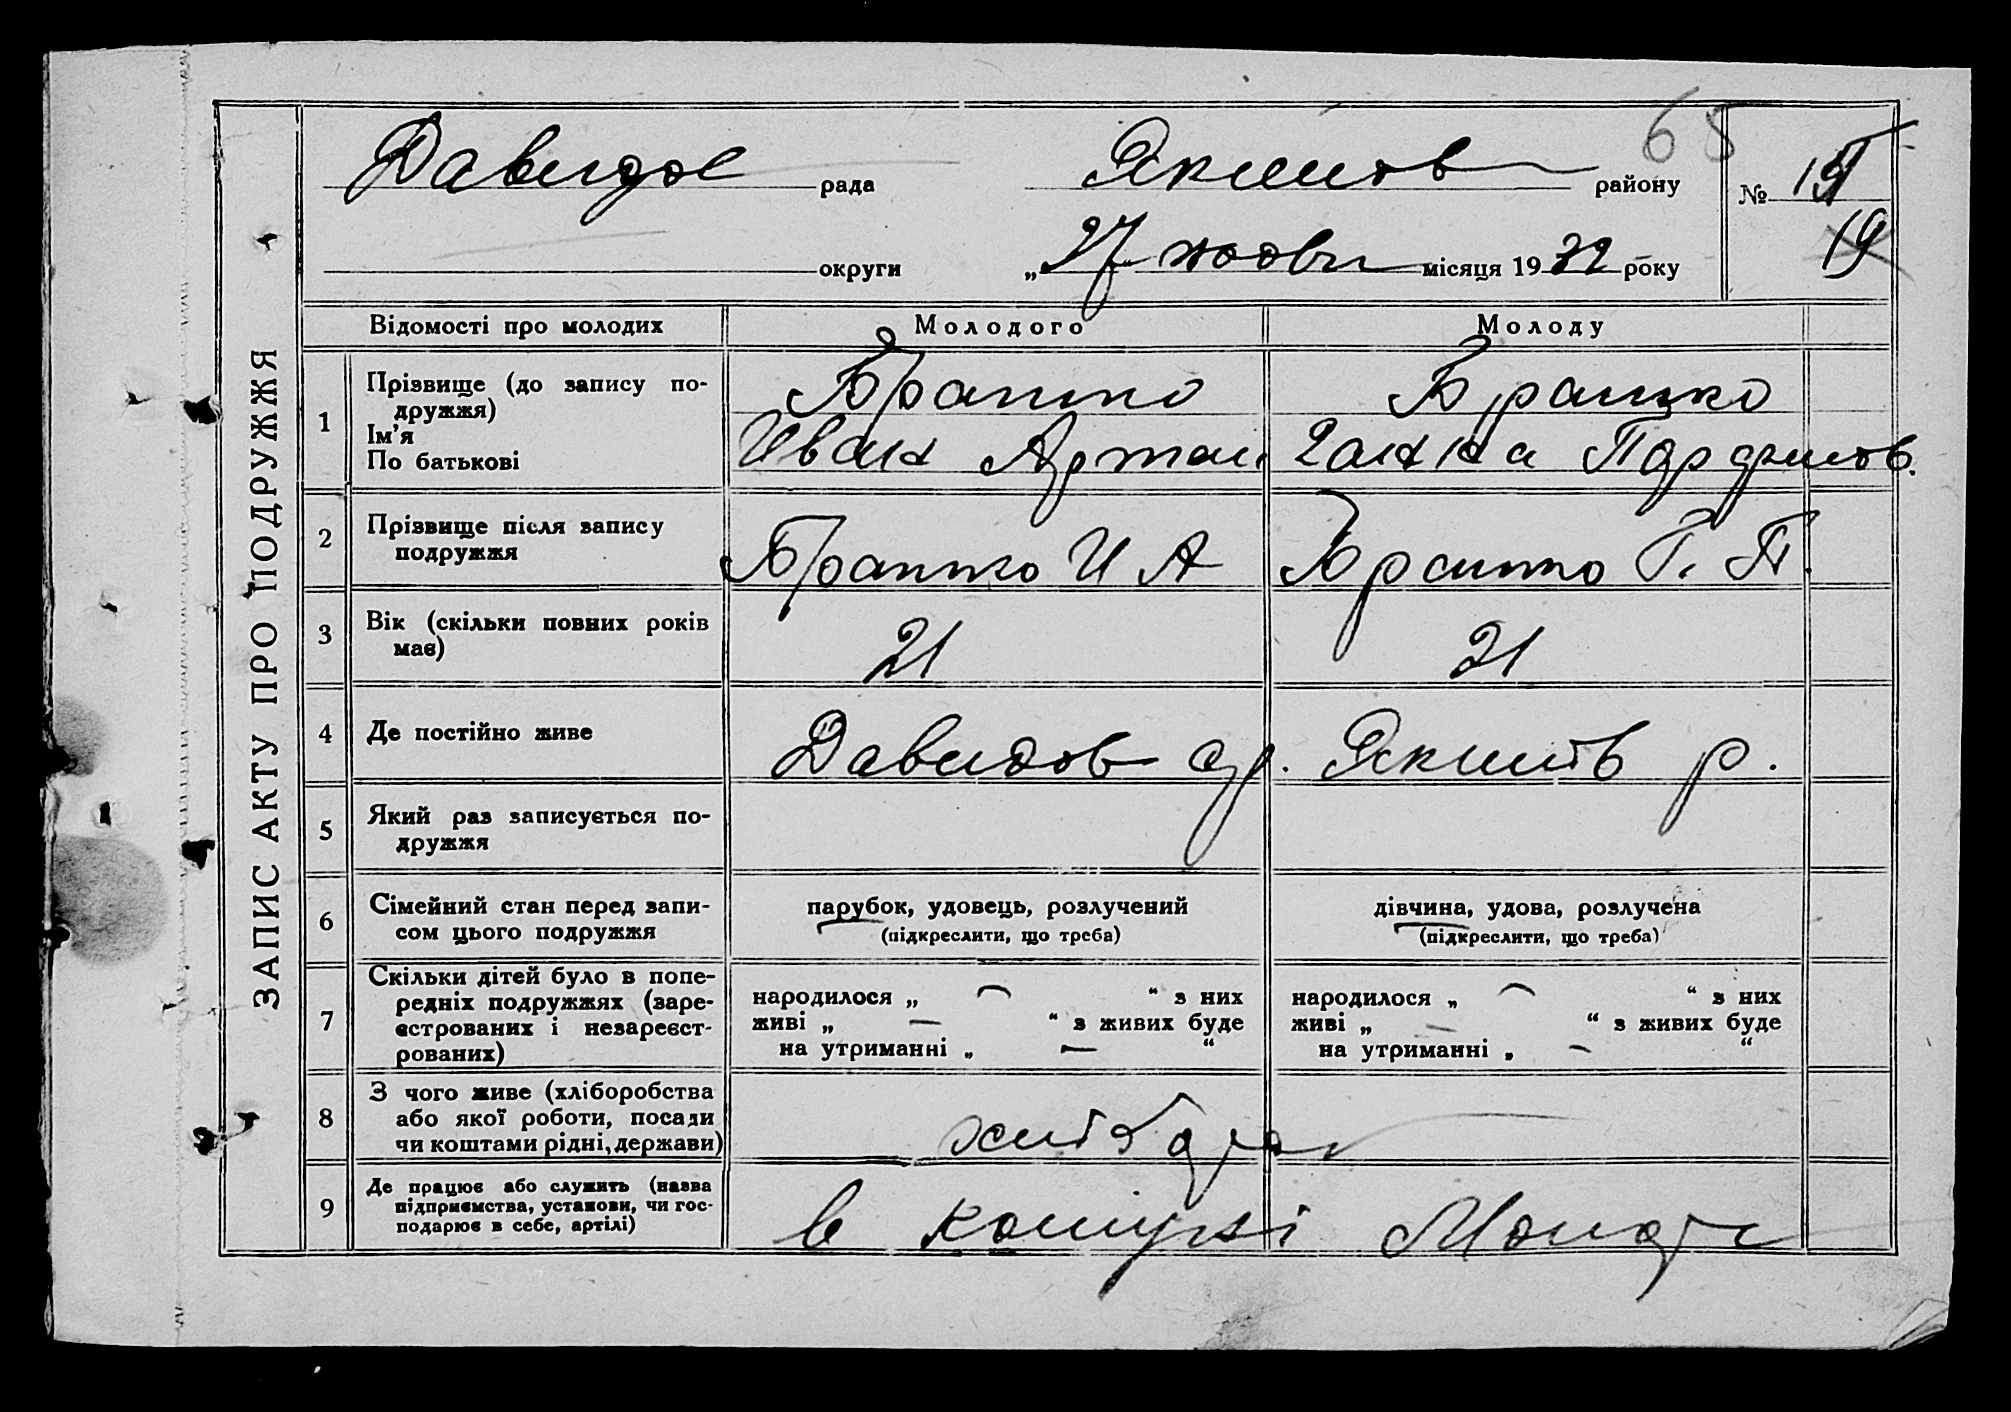 65
Давидов рада Якимов району № 19
округи „27“ жовтн місяця 1932 року 19
ЗАПИС АКТУ ПРО ПОДРУЖЖЯ
Відомості про молодих Молодого Молоду
1 Прізвище (до запису по-
дружжя)
Ім’я
По батькові
Брашко
Иван Артам.
Брашко
Ганна Парфилов.
2 Прізвище після запису
подружжя
Брашко И А Брашко Г. П.
3 Вік (скільки повних років
має)
21 21
4 Де постійно живе
Давидов с/р. Якимів р.
5 Який раз записується по-
дружжя
6 Сімейний стан перед запи-
сом цього подружжя
парубок, удовець, розлучений
(підкреслити, що треба)
дівчина, удова, розлучена
(підкреслити, що треба)
7 Скільки дітей було в попе-
редніх подружжях (заре-
єстрованих і незареєст-
рованих)
народилося „ — “ з них
живі „ — “ з живих буде
на утриманні „ — “
народилося „ — “ з них
живі „ — “ з живих буде
на утриманні „ — “
8 З чого живе (хліборобства
або якої роботи, посади
чи коштами рідні, держави)
9 Де працює або служить (назва
підприємства, установи, чи гос-
подарює в себе, артілі)
в комуні